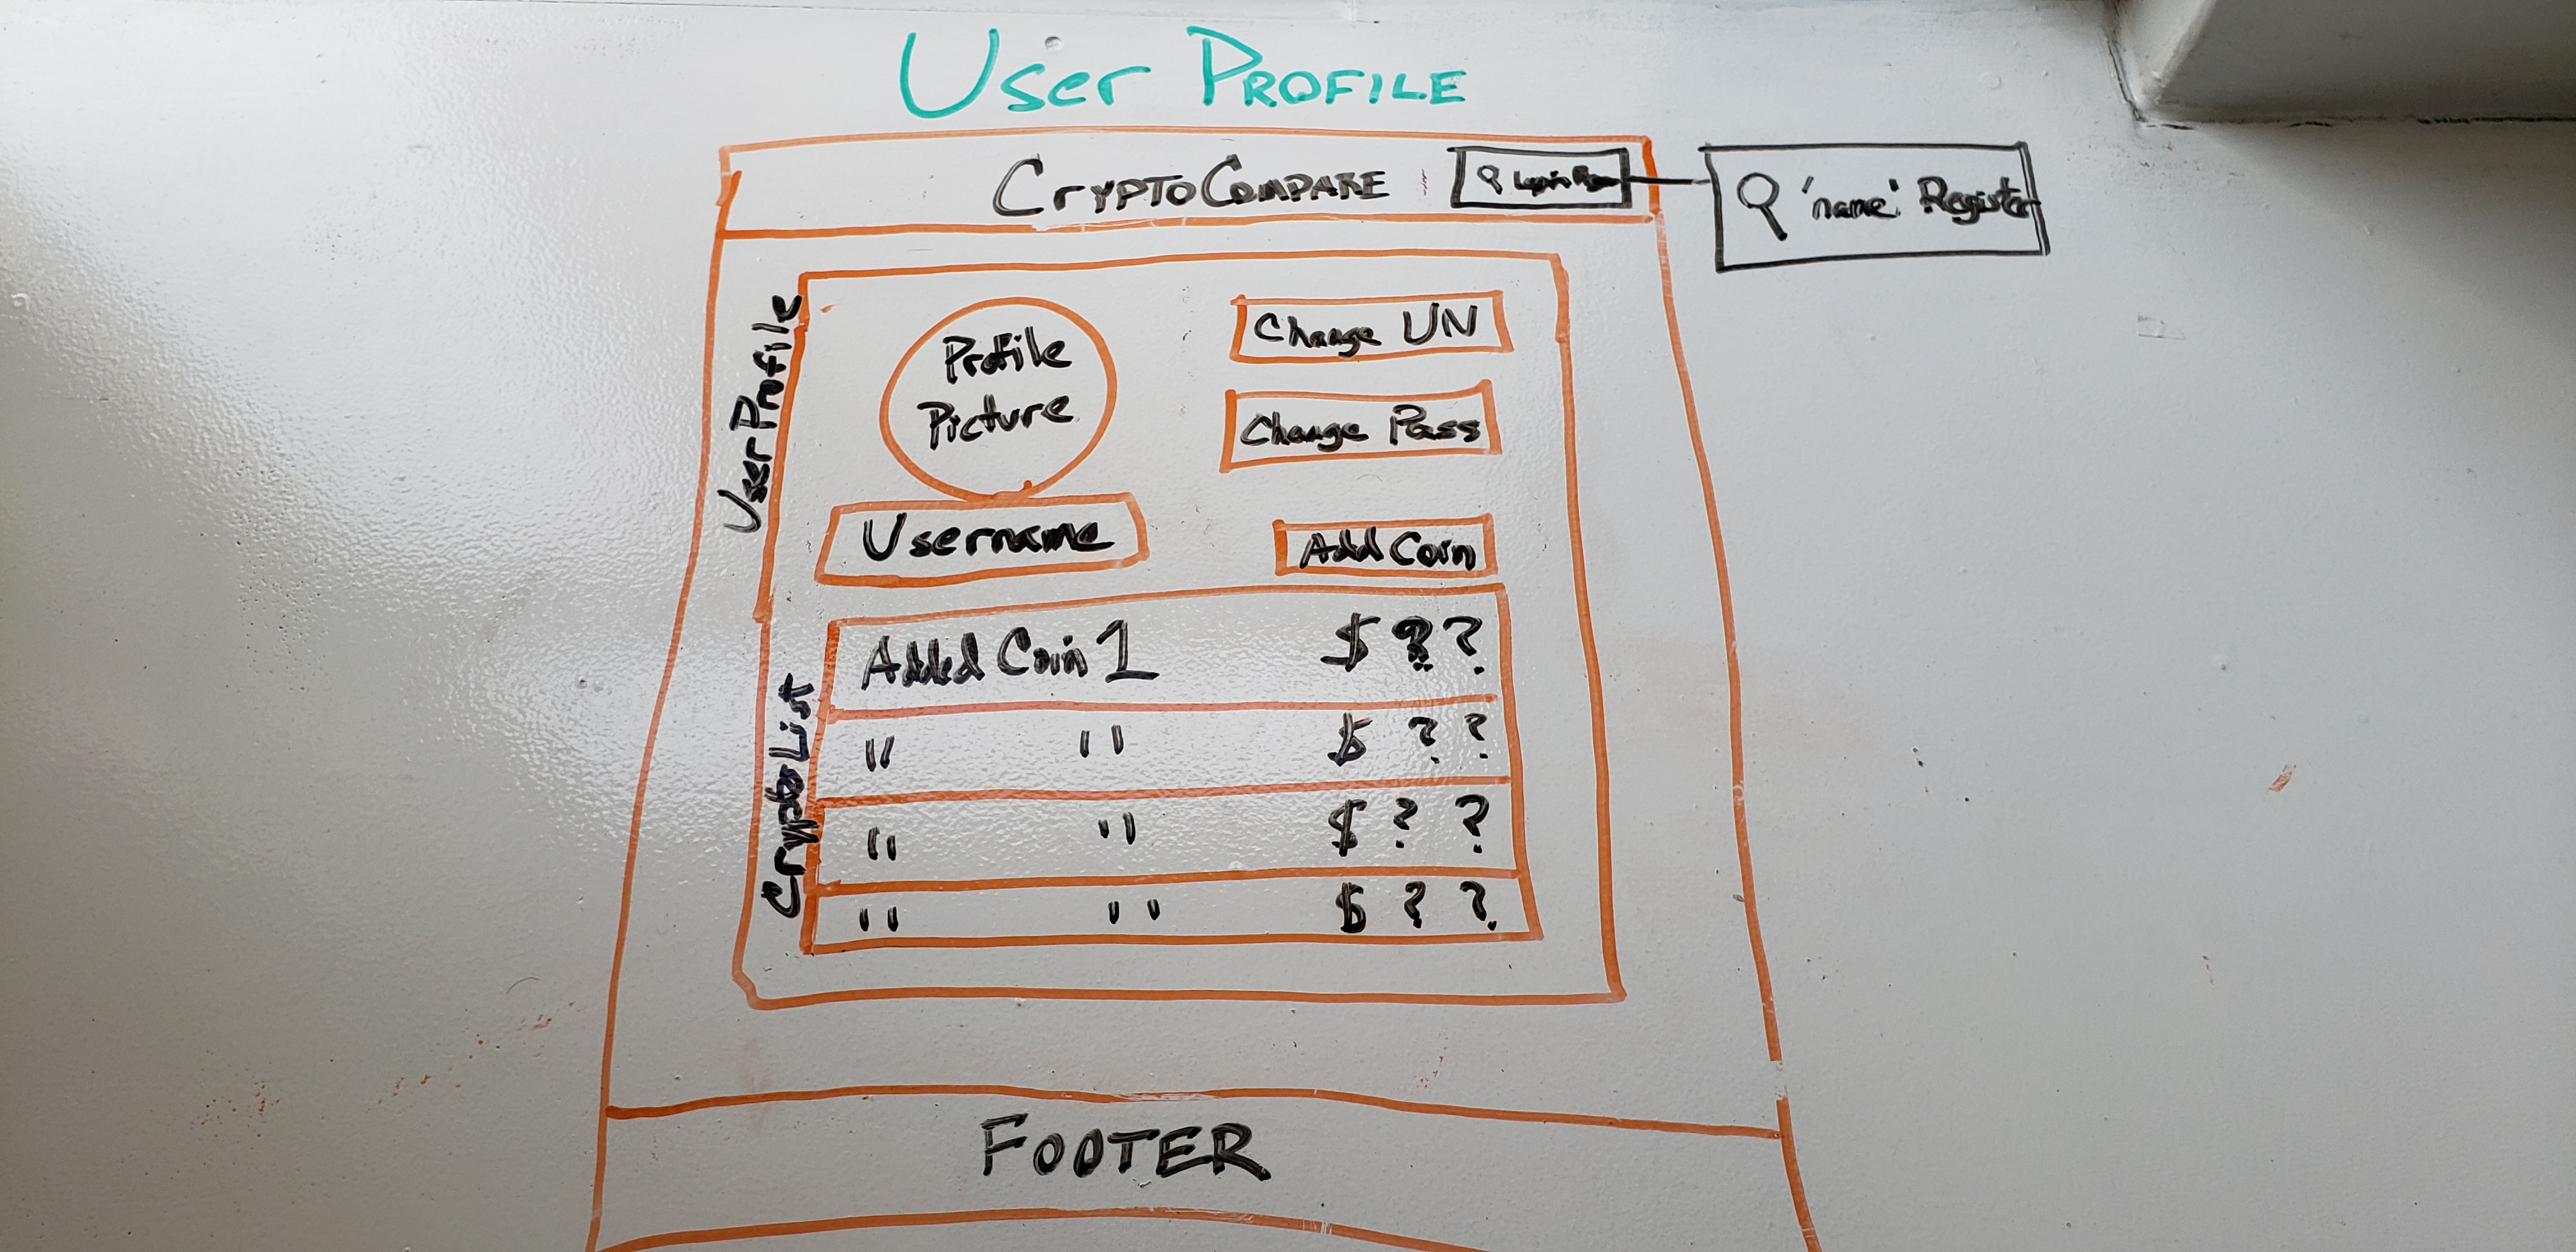 User PROFILE
CRYPTOCOMPARE
Login
'name' Register
UserProfile
Profile
Picture
Change UN
Change Pass
Username
Add Coin
CryptoList
Added Coin 1 $ ? ?
" " $ ? ?
" " $ ? ?
" " $ ? ?
FOOTER